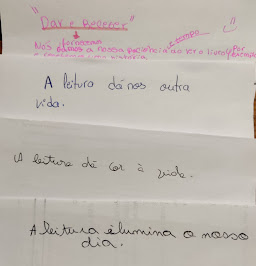 "Dar e Receber"
fornecemos e tempo
Nós a nossa paciência ao ver o livro, Por
exemplo
A leitura dá nos outra
vida.
A leitura dá cor à vida.
A leitura élumina o nosso
dia.